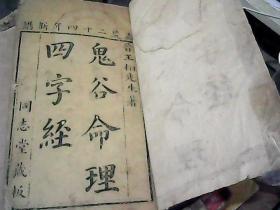 二十四年新
王先生著
鬼谷命理
四字經
同志堂藏板